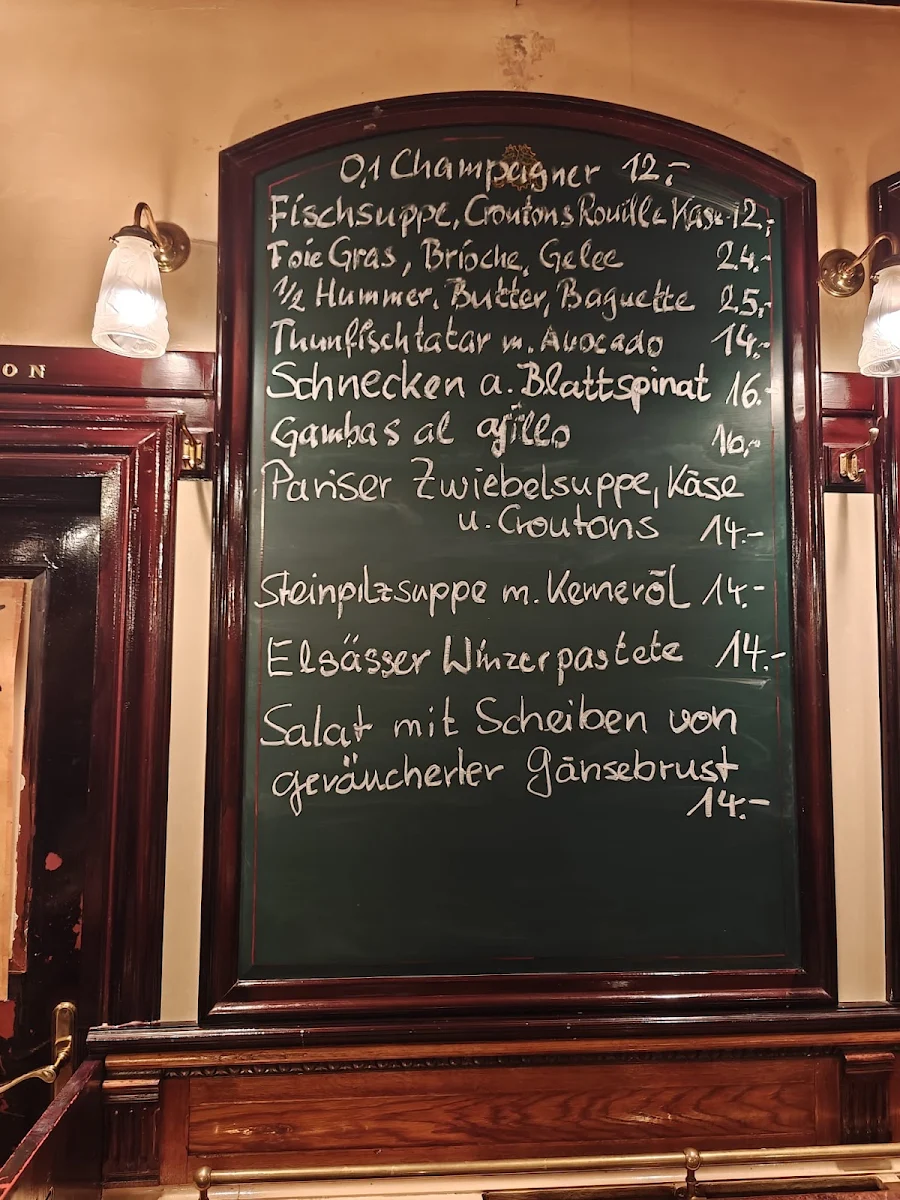 0,1 Champagner 12,-
Fischsuppe, Croutons Rouille Käse 12,-
Foie Gras, Brioche, Gelee 24.-
1/2 Hummer, Butter, Baguette 25,-
Thunfischtatar m. Avocado 14,-
Schnecken a. Blattspinat 16.-
Gambas al ajillo 16,-
Pariser Zwiebelsuppe, Käse
u. Croutons 14.-
Steinpilzsuppe m. Kerneröl 14.-
Elsässer Winzerpastete 14.-
Salat mit Scheiben von
geräucherter Gänsebrust
14.-
ON